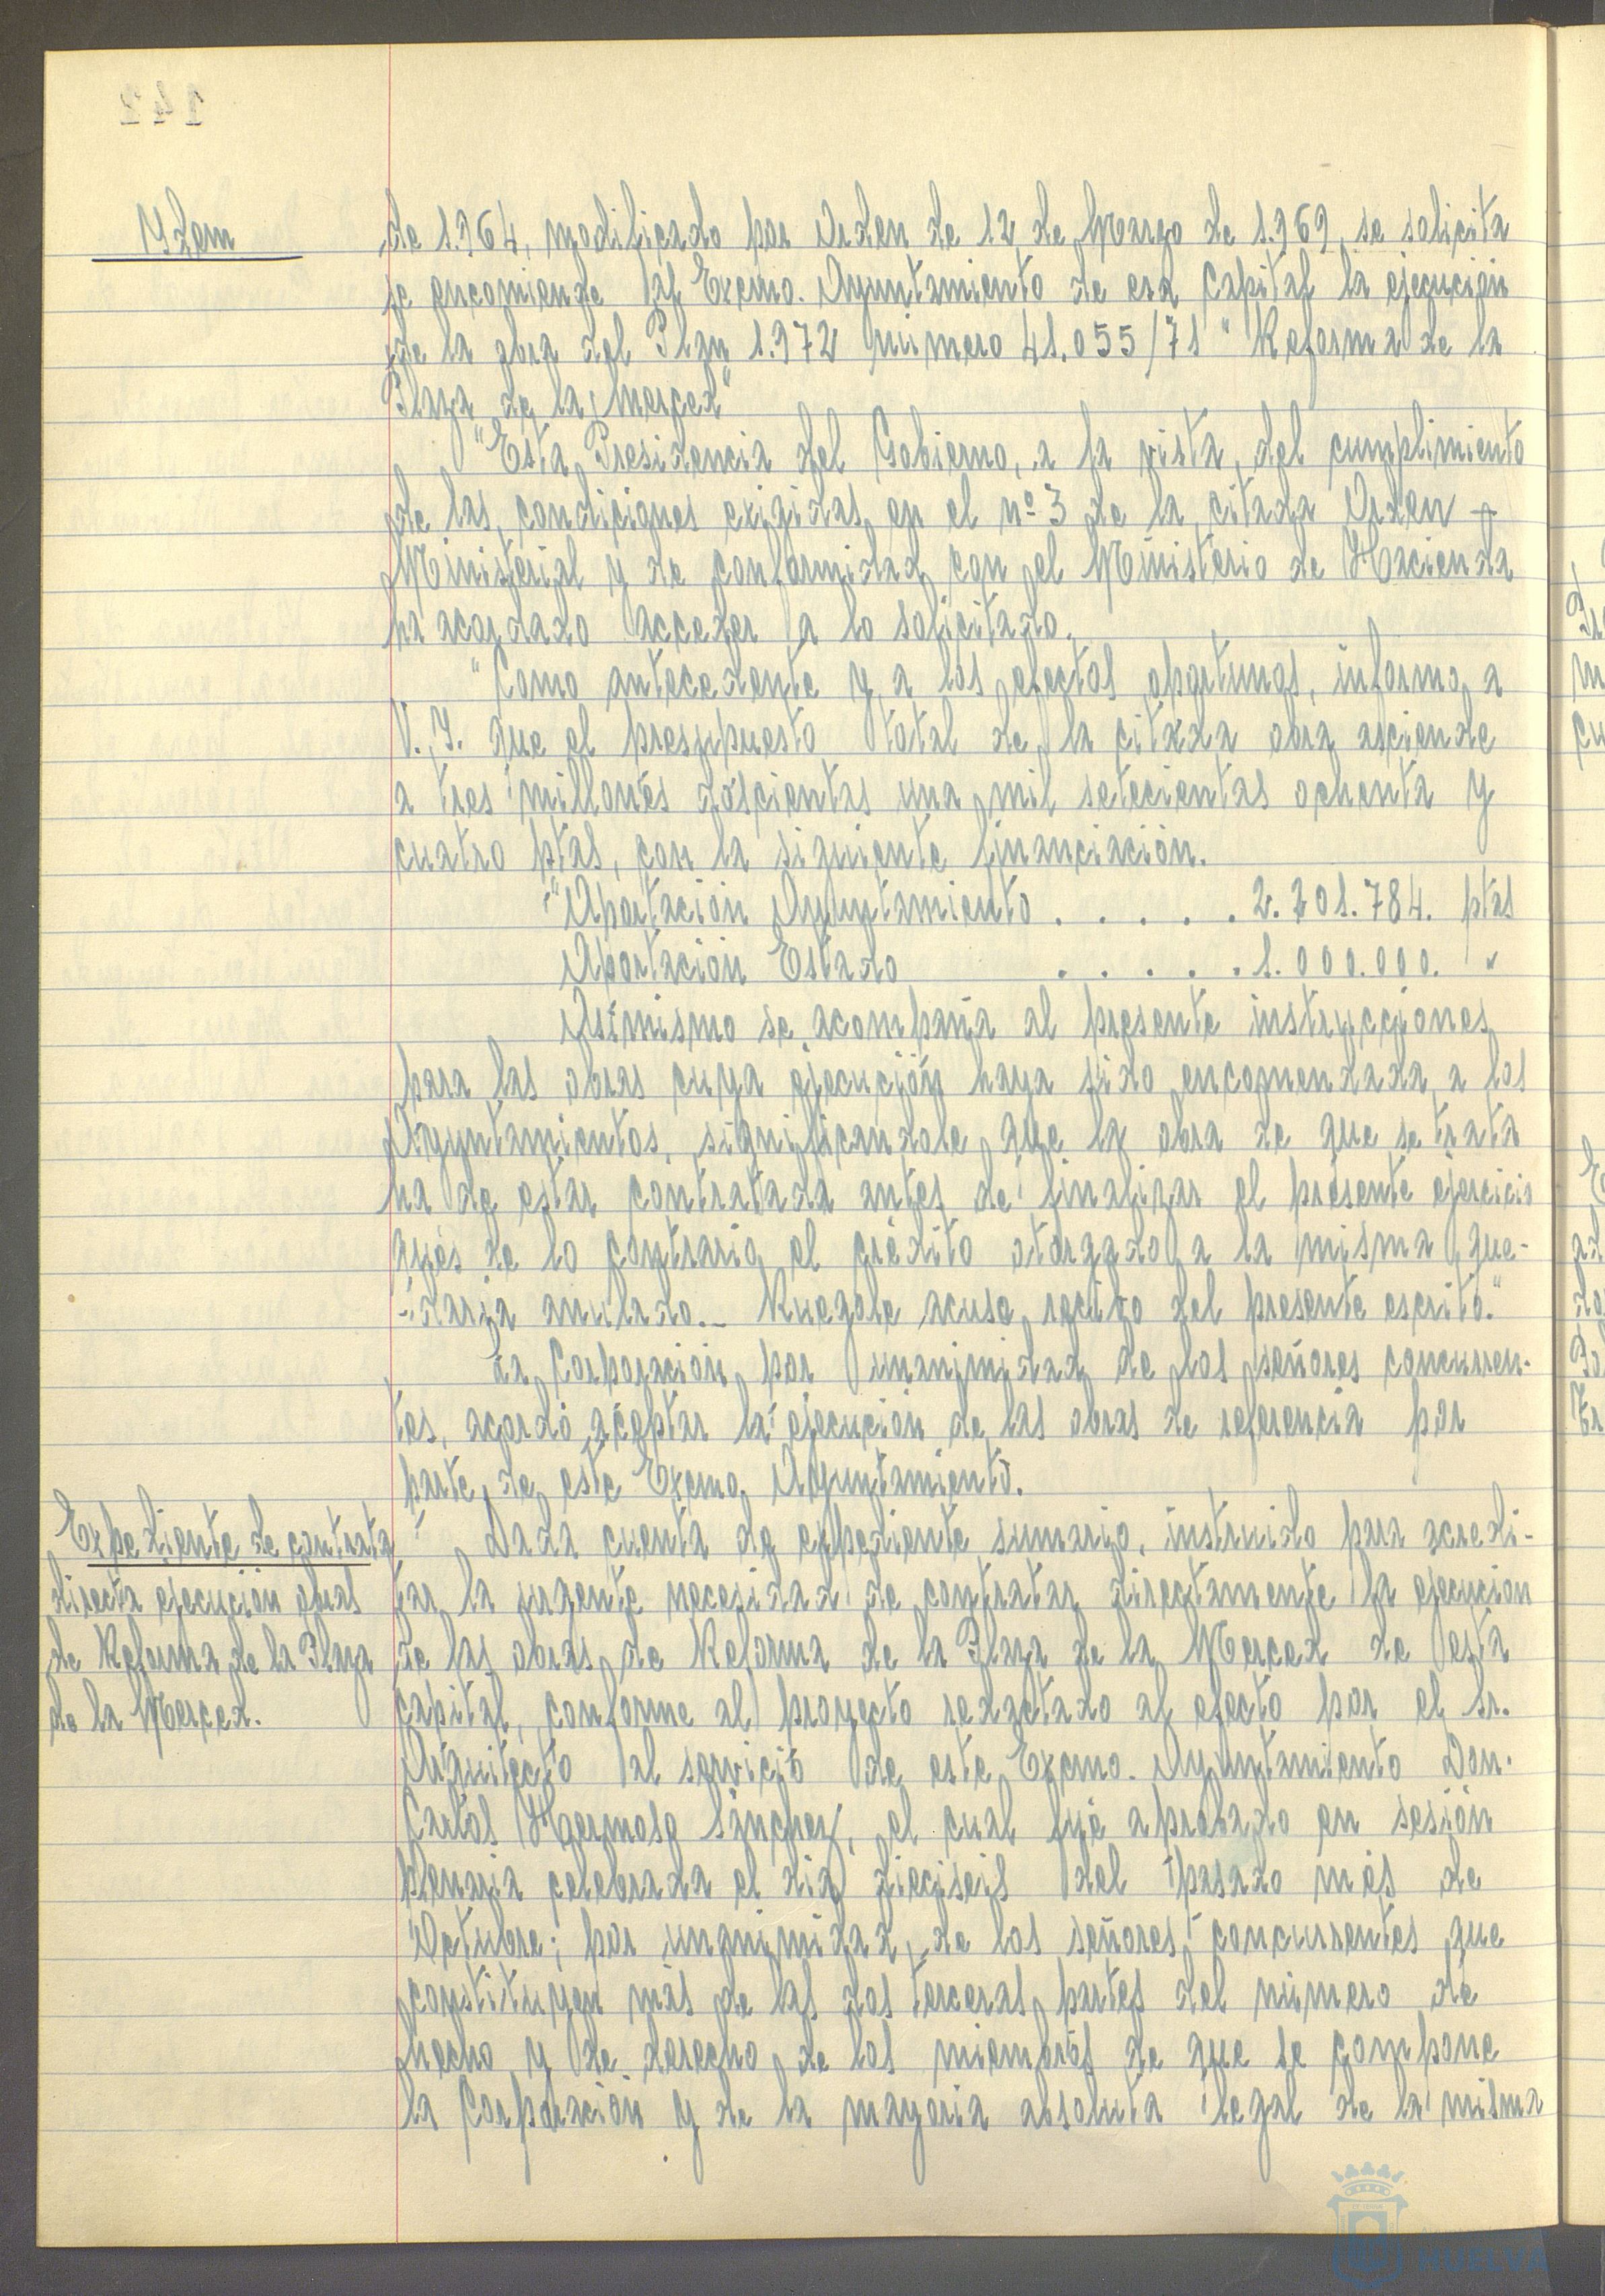 142
Ydem
de 1.964, modificado por Orden de 12 de Marzo de 1.969, se solicita
se encomiende al Excmo. Ayuntamiento de esa Capital la ejecución
de la obra del Plan 1.972 número 41.055/71 "Reforma de la
Plaza de la Merced"
"Esta Presidencia del Gobierno, a la vista, del cumplimiento
de las condiciones exigidas en el nº 3 de la citada Orden -
Ministerial y de conformidad con el Ministerio de Hacienda
ha acordado acceder a lo solicitado.
"Como antecedente y a los efectos oportunos, informo a
V. Y. que el presupuesto total de la citada obra asciende
a tres millones doscientas una mil setecientas ochenta y
cuatro ptas, con la siguiente financiación.
"Aportación Ayuntamiento . . . . . 2.201.784. ptas
Aportación Estado . . . . . 1.000.000. "
Asimismo se acompaña al presente instrucciones
para las obras cuya ejecución haya sido encomendada a los
Ayuntamientos, significandole que la obra de que se trata
ha de estar contratada antes de finalizar el presente ejercicio
qués de lo contrario el crédito otorgado a la misma que-
-daria anulado.- Ruegole acuse recibo del presente escrito."
La Corporación por unanimidad de los señores concurren-
tes, acordó aceptar la ejecución de las obras de referencia por
parte de este Excmo. Ayuntamiento.
Expediente de contrata
directa ejecución obras
de Reforma de la Plaza
de la Merced.
Dada cuenta de expediente sumario, instruido para acredi-
tar la urgente necesidad de contratar directamente la ejecución
de las obras de Reforma de la Plaza de la Merced de esta
capital, conforme al proyecto redactado al efecto por el Sr.
Arquitecto al servicio de este Excmo. Ayuntamiento Don.
Carlos Hermoso Sánchez, el cual fué aprobado en sesión
plenaria celebrada el dia dieciseis del pasado més de
Octubre; por unanimidad, de los señores concurrentes que
constituyen más de las dos terceras partes del número de
hecho y de derecho de los miembros de que se compone
la Corporación y de la mayoria absoluta legal de la misma
HUELVA